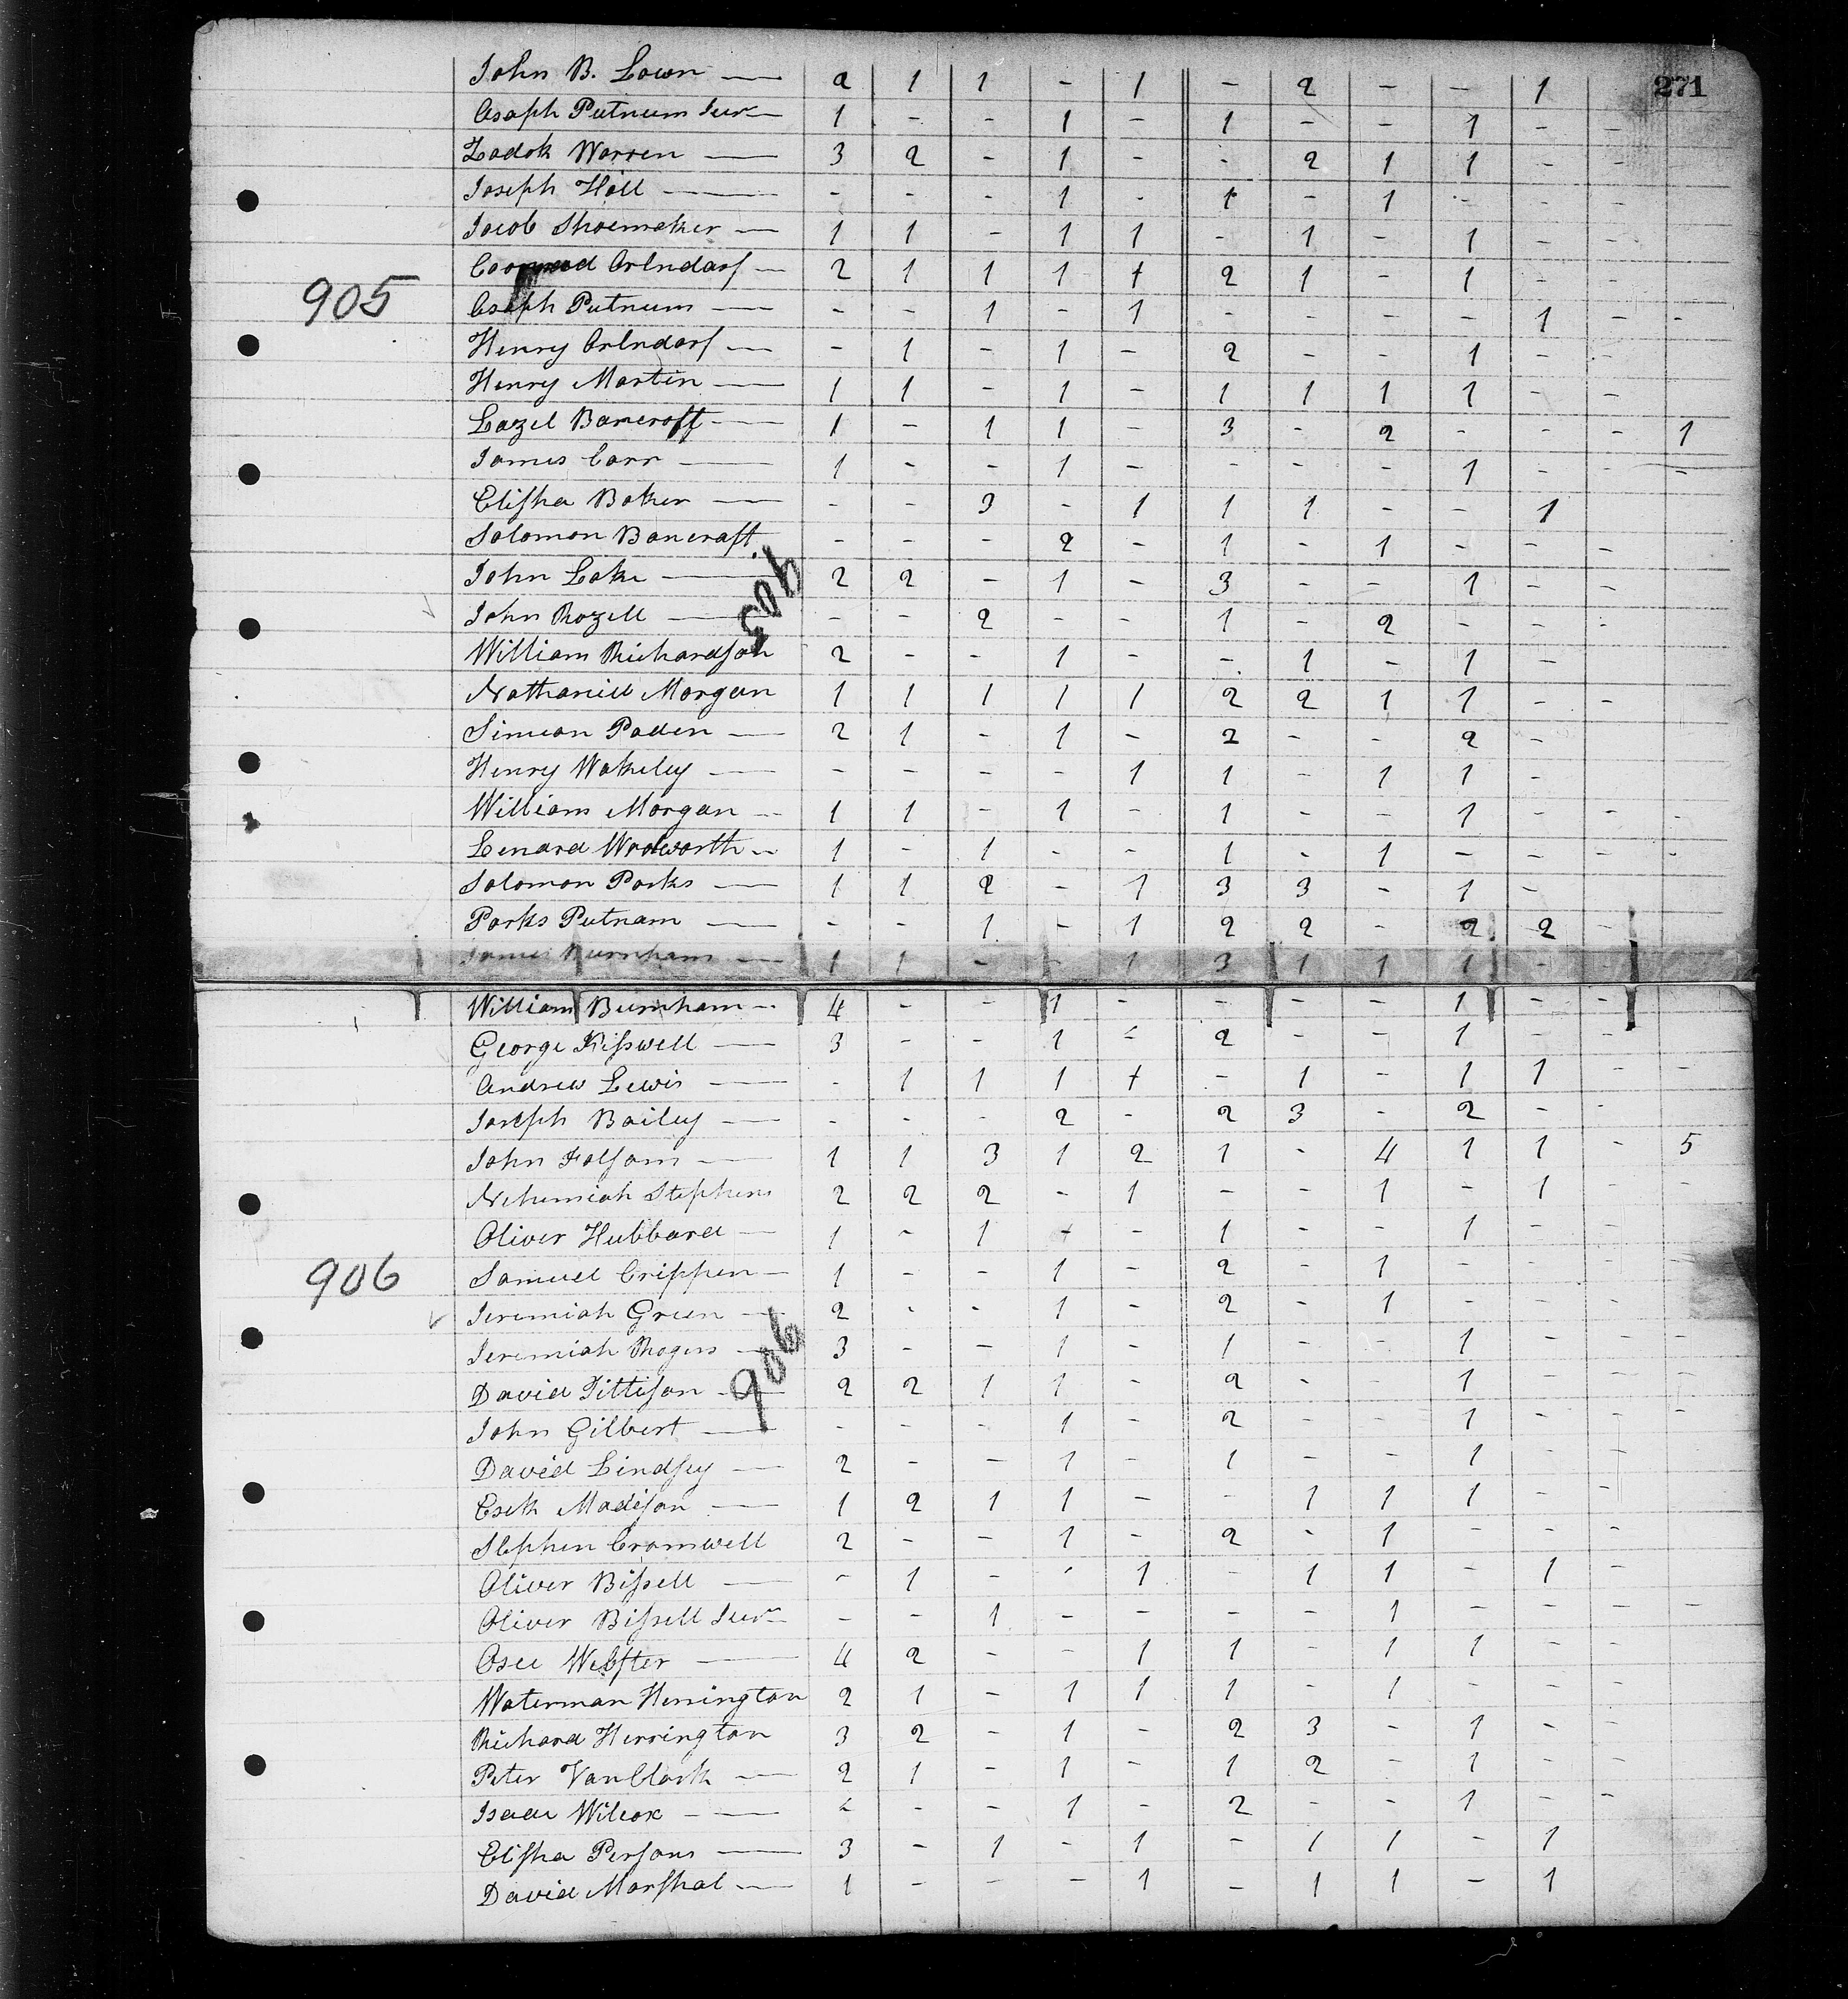 271
John B. Lown — 2 1 1 - 1 - 2 - - 1
Asaph Putnum Junr 1 - - 1 - 1 - - 1 - -
Zadok Warren — 3 2 - 1 - - 2 1 1 - -
Joseph Hall — - - - 1 - 1 - 1 - - -
Jacob Shoemaker — 1 1 - 1 1 - 1 - 1 - -
Conrad Orlndorf — 2 1 1 1 1 2 1 - 1 - -
905
Asaph Putnum — - - 1 - 1 - - - - 1 - -
Henry Orlndorf — - 1 - 1 - 2 - - 1 - -
Henry Martin — 1 1 - 1 - 1 1 1 1 - -
Lazel Bancroft — 1 - 1 1 - 3 - 2 - - - 1
James Carr — 1 - - 1 - - - - 1 - - -
Elisha Baker — - - 3 - 1 1 1 - - 1
Solomon Bancraft - - - 2 - 1 - 1 - - -
John Lake — 2 2 - 1 - 3 - - 1 - -
905
John Rozell — - - 2 - - 1 - 2 - - -
William Richardson 2 - - 1 - - 1 - 1 -
Nathaniel Morgan 1 1 1 1 1 2 2 1 1 - -
Simeon Paden — 2 1 - 1 - 2 - - 2 -
Henry Wakeley — - - - - 1 1 - 1 1 -
William Morgan — 1 1 - 1 - 1 - - 1 - - -
Lenard Wodworth — 1 - 1 - - 1 - 1 - - - -
Solomon Parks — 1 1 2 - 1 3 3 - 1 -
Parks Putnam — - - 1 - 1 2 2 - 2 2 -
James Burnham — 1 1 - - 1 3 1 1 1 - -
William Burnham — 4 - - 1 - - - - 1 - -
George Kisswell — 3 - - 1 - 2 - - 1 - -
Andrew Lewis — - 1 1 1 1 - 1 - 1 1 - -
Joseph Bailey — - - - 2 - 2 3 - 2 - -
John Folsom — 1 1 3 1 2 1 - 4 1 1 - 5
Nehemiah Stephens 2 2 2 - 1 - - 1 - 1 - -
Oliver Hubbard — 1 - 1 - - 1 - - 1 - -
906
Samuel Crippen — 1 - - 1 - 2 - 1 - - - -
Jeremiah Green — 2 - - 1 - 2 - 1 - - -
Jeremiah Rogers — 3 - - 1 - 1 - - 1 - - -
906
David Tittison — 2 2 1 1 - 2 - - 1 - - -
John Gilbert — - - - 1 - 2 - - 1 - - -
David Lindsey — 2 - - 1 - 1 - - 1 - -
Esek Madison — 1 2 1 1 - - 1 1 1 - -
Stephen Cromwell 2 - - 1 - 2 - 1 - - -
Oliver Bissell — - 1 - - 1 - 1 1 - 1 -
Oliver Bissell Junr - - 1 - - - - 1 - - - -
Osee Webster — 4 2 - - 1 1 - 1 1 - -
Waterman Herrington 2 1 - 1 1 1 - 1 - - -
Richard Herrington 3 2 - 1 - 2 3 - 1 - -
Peter VanClark — 2 1 - 1 - 1 2 - 1 - -
Isaac Wilcox — - - - 1 - 2 - - 1 - -
Elisha Persons — 3 - 1 - 1 - 1 1 - 1
David Marshal — 1 - - - 1 - 1 1 - 1